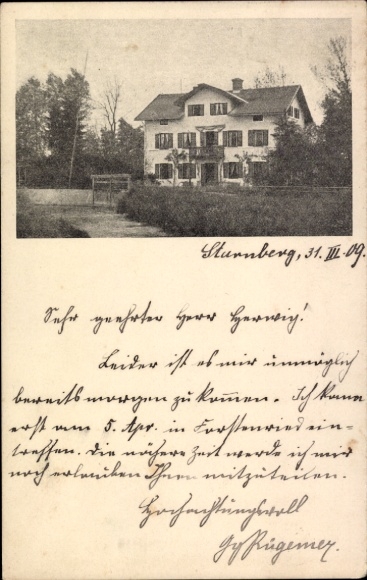 Starnberg, 31. III. 09.
Sehr geehrter Herr Herwig!
Leider ist es mir unmöglich
bereits morgen zu kommen. Ich kann
erst am 5. Apr. in Forstenried ein-
treffen. Die nähere Zeit werde ich mir
noch erlauben Ihnen mitzuteilen.
Hochachtungsvoll
Rügemer